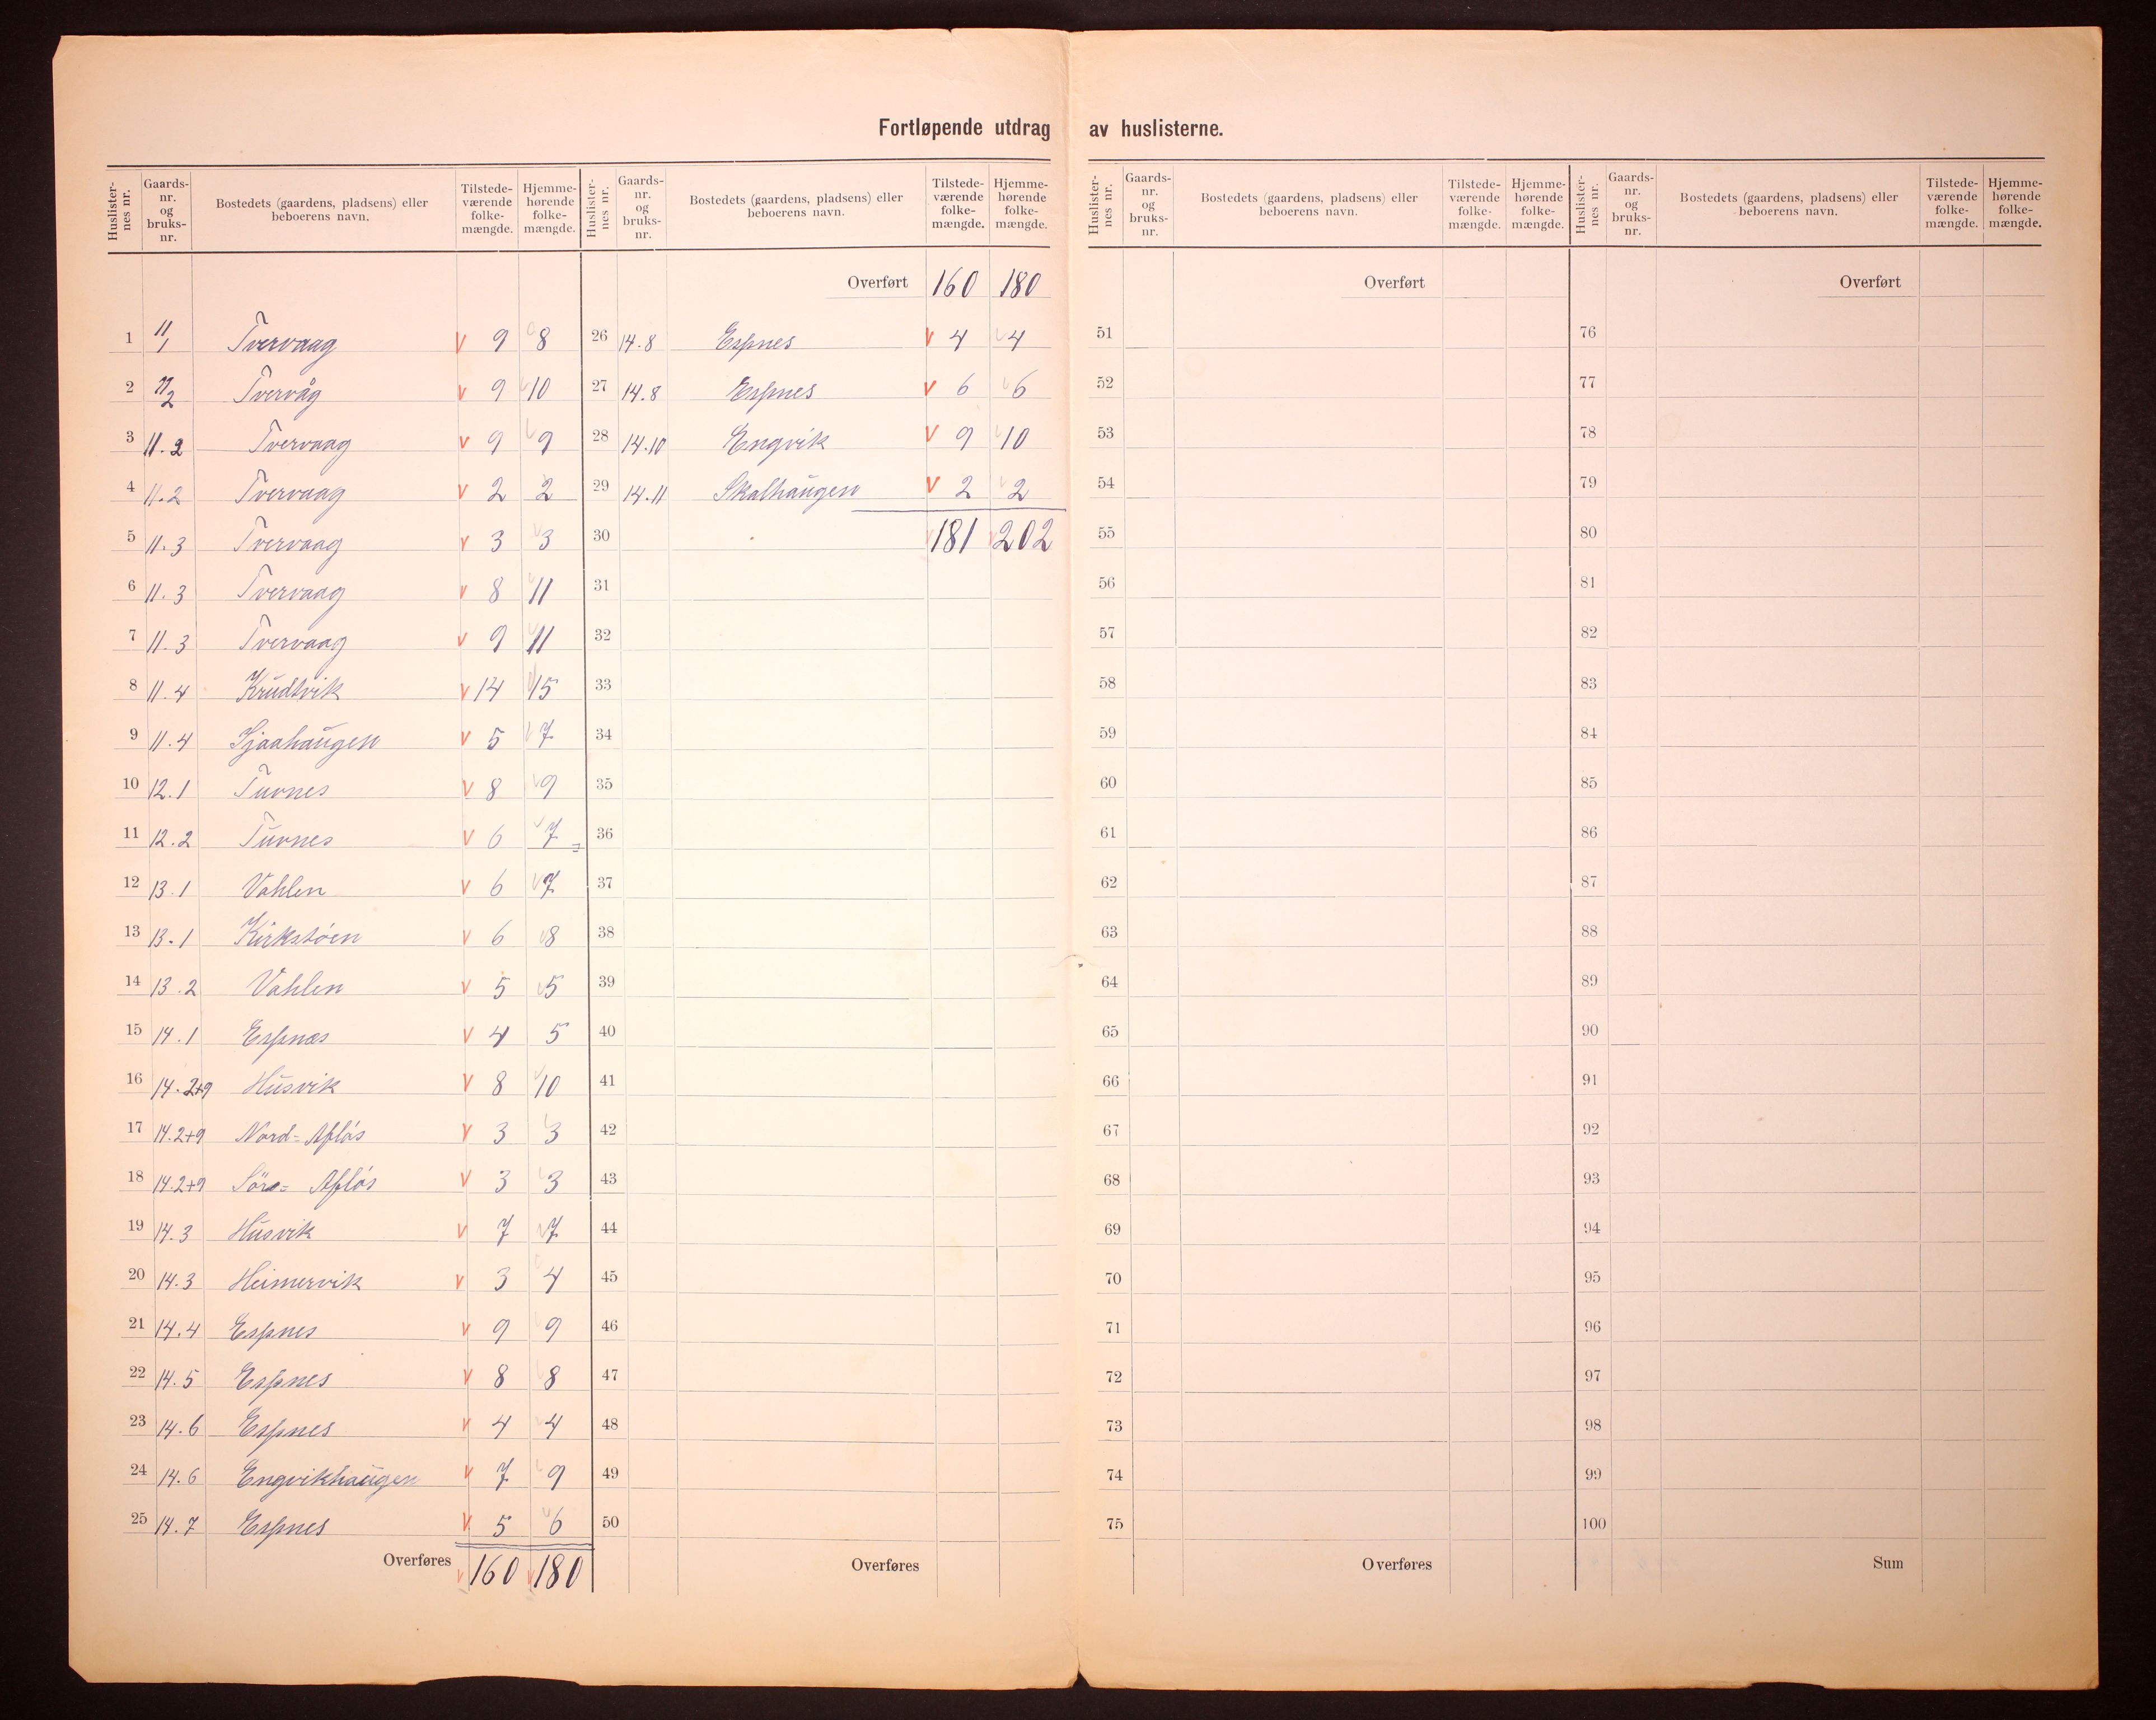 Fortløpende utdrag av huslisterne.
Huslisternes nr. Gaards-nr. og bruks-nr. Bostedets (gaardens, pladsens) eller beboerens navn. Tilstede-værende folke-mængde. Hjemme-hørende folke-mængde.
1 11/1 Tvervaag v 9 8
2 11/2 Tvervåg v 9 10
3 11.2 Tvervaag v 9 9
4 11.2 Tvervaag v 2 2
5 11.3 Tvervaag v 3 3
6 11.3 Tvervaag v 8 11
7 11.3 Tvervaag v 9 11
8 11.4 Krudtvik v 14 15
9 11.4 Sjaahaugen v 5 7
10 12.1 Turnes v 8 9
11 12.2 Turnes v 6 7
12 13.1 Vahlen v 6 7
13 13.1 Kirkstøen v 6 8
14 13.2 Vahlen v 5 5
15 14.1 Espnæs v 4 5
16 14.2+9 Husvik v 8 10
17 14.2+9 Nord= Afløs v 3 3
18 14.2+9 Sørø= Afløs v 3 3
19 14.3 Husvik v 7 7
20 14.3 Heimervik v 3 4
21 14.4 Espnes v 9 9
22 14.5 Espnes v 8 8
23 14.6 Espnes v 4 4
24 14.6 Engvikhaugen v 7 9
25 14.7 Espnes v 5 6
Overføres 160 180
Huslisternes nr. Gaards-nr. og bruks-nr. Bostedets (gaardens, pladsens) eller beboerens navn. Tilstede-værende folke-mængde. Hjemme-hørende folke-mængde.
Overført 160 180
26 14.8 Espnes v 4 4
27 14.8 Espnes v 6 6
28 14.10 Engvik v 9 10
29 14.11 Skalhaugen v 2 2
30 181 202
31
32
33
34
35
36
37
38
39
40
41
42
43
44
45
46
47
48
49
50
Overføres
Huslisternes nr. Gaards-nr. og bruks-nr. Bostedets (gaardens, pladsens) eller beboerens navn. Tilstede-værende folke-mængde. Hjemme-hørende folke-mængde.
Overført
51
52
53
54
55
56
57
58
59
60
61
62
63
64
65
66
67
68
69
70
71
72
73
74
75
Overføres
Huslisternes nr. Gaards-nr. og bruks-nr. Bostedets (gaardens, pladsens) eller beboerens navn. Tilstede-værende folke-mængde. Hjemme-hørende folke-mængde.
Overført
76
77
78
79
80
81
82
83
84
85
86
87
88
89
90
91
92
93
94
95
96
97
98
99
100
Sum